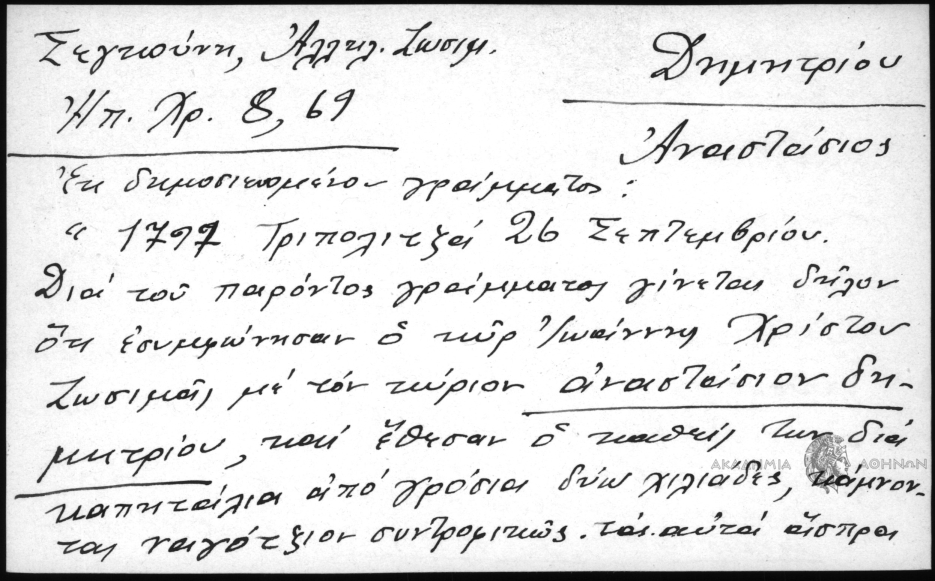 Σεγκούνη, Ἀλληλ. Ζωσιμ.
Δημητρίου
Ἠπ. Χρ. 8, 69
Ἀναστάσιος
Ἐκ δημοσιευομένου γράμματος:
" 1797 Τριπολιτζά 26 Σεπτεμβρίου.
Διά τοῦ παρόντος γράμματος γίνεται δῆλον
ὅτι ἐσυμφώνησαν ὁ κὺρ Ἰωάννης Χρίστου
Ζωσιμᾶς μέ τόν κύριον ἀναστάσιον δη-
μητρίου, καί ἔθεσαν ὁ καθείς των διά
ΑΚΑΔΗΜΙΑ ΑΘΗΝΩΝ
καπητάλια ἀπό γρόσια δύω χιλιάδες, κάμνον-
τας συντροφικῶς. τάς αὐτά ἄσπρα